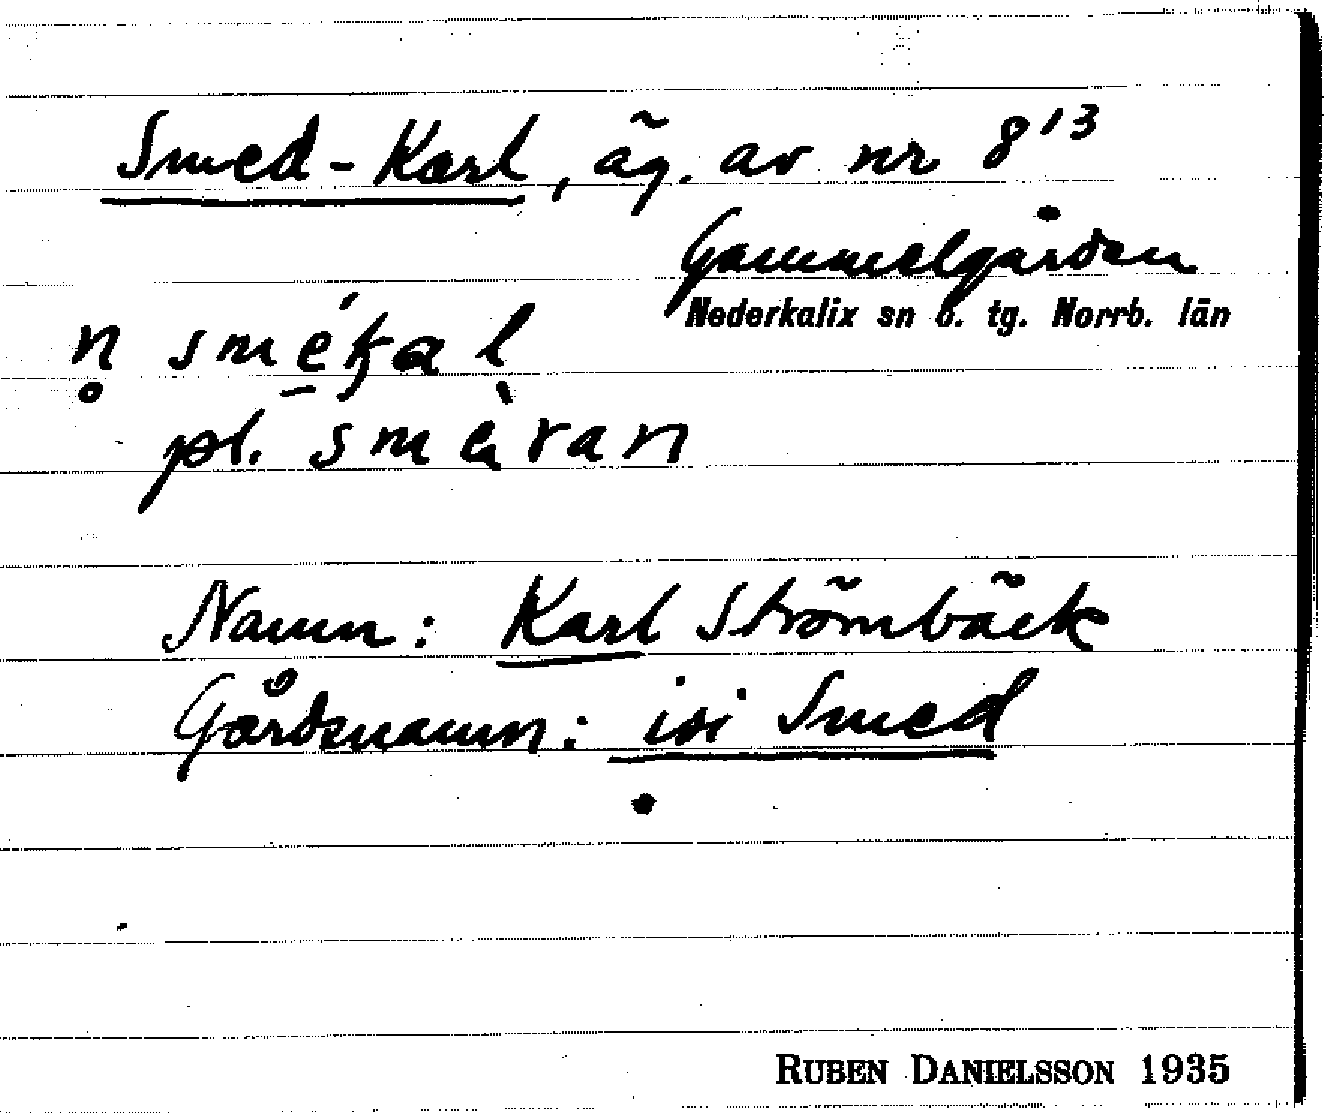 Smed-Karl, äg. av nr 8¹³
Gammelgården
Nederkalix sn o. tg. Norrb. län
n̥ smékal
pl. smèvan
Namn: Karl Strömbäck
Gårdsnamn: isi Smed
RUBEN DANIELSSON 1935